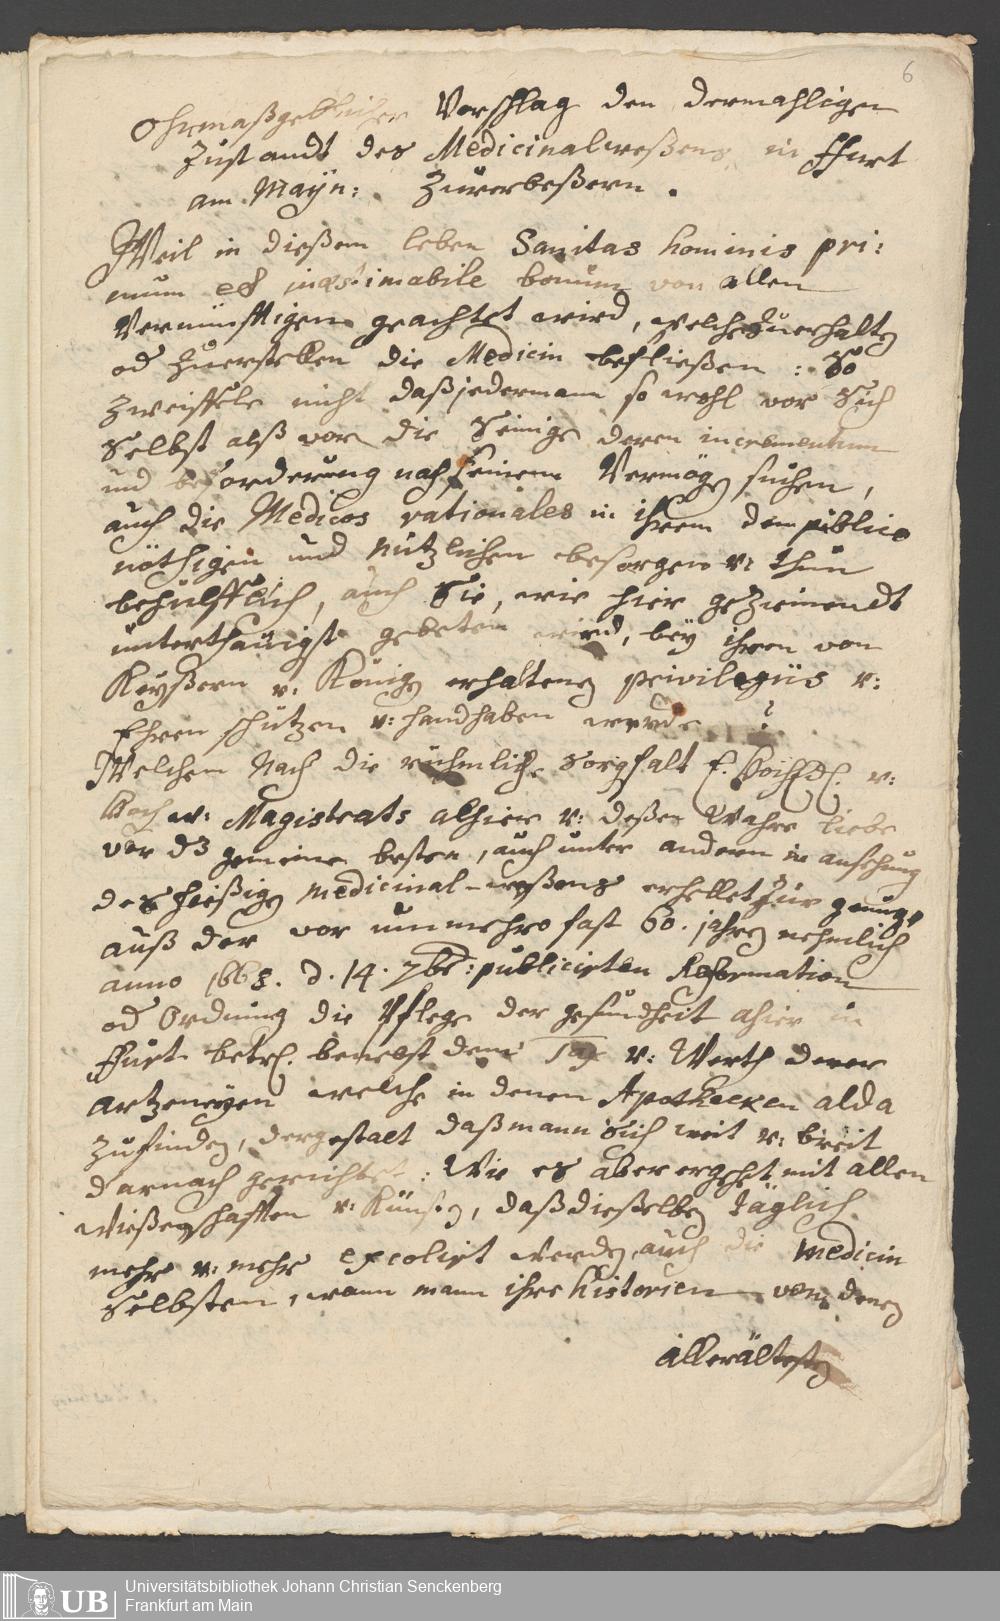 6
Ohnmaßgeblicher Vorschlag den dermahligen
Zustandt des Medicinalweßens in Ffurt
am Mayn: Zuverbeßern.
Weil in dießem leben Sanitas hominis pri:
mum est inaestimabile bonum von allen
Vernünfftigen geachtet wird, welche Zuerhalten
od Zuerstellen die Medicin befließen: So
Zweiffele nicht daß jedermann so wohl vor Sich
Selbst alß vor die Seinige deren incrementum
und beforderung nach seinem Vermögen suchen,
auch die Medicos rationales in ihrem dem publico
nöthigen und nutzlichen besorgen v: thun
behülfflich, auch Sie, wie hier geziemendt
unterthänigst gebeten wird, bey ihren von
Keyßern v: Königen erhaltenen privilegiis v:
Ehren schützen v: handhaben werde
Welchem Nach die rühmliche Sorgfalt E.
Hoch w: Magistrats alhier v: deßen Wahre liebe
vor dz gemeine beste, auch unter andern in ansehung
des hießigen medicinal-weßens erhellet Zur genüge
auß der vor nunmehro fast 60. jahren nehmlich
anno 1668. d. 14. 7br: publicirten Reformation
od Ordnung die Pflege der gesundheit alhier in
Ffurt betr. benebst dem Tax v: Werth derer
artzeneyen welche in denen Apothecken alda
Zufinden, dergestalt daß mann Sich weit v: breit
darnach gerichtet: Wie es aber ergehet mit allen
Wießenschafften v: Künsten, daß dießelben täglich
mehr v: mehr excolirt werden, auch die Medicin
Selbsten, wann mann ihre historien von denen
allerältesten
Universitätsbibliothek Johann Christian Senckenberg
Frankfurt am Main
UB